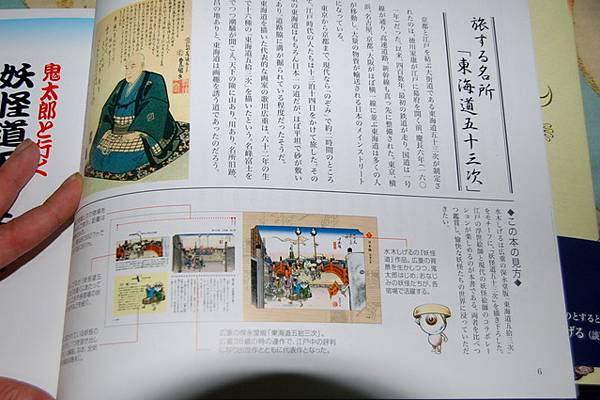 旅する名所
「東海道五十三次」
京都と江戸を結ぶ大街道である東海道五十三次が制定さ
れたのは、徳川家康が江戸に幕府を開く前、慶長六年（一六〇
一年）だった。以来、四百数年、最初の鉄道が走り、国道は一号
線が通り、高速道路、新幹線も真っ先に整備された。東京、横
浜、名古屋、京都、大阪がほぼ一線に並ぶ東海道は多くの人
が移動し、大量の物資が輸送される日本のメインストリート
になっている。
東京から京都まで、現代なら「のぞみ」で約二時間のところ
を、江戸時代の人たちは十三泊十四日をかけて旅した。その
頃の東海道はもちろん日本一の道だが、ほぼ平坦で砂が敷い
てあり、道路脇に溝が掘られている程度だったそうだ。
東海道を描いた代表的な画家の歌川広重は、六十二年の生
◆この本の見方◆
水木しげるは広重の保永堂版「東海道五拾三次」
をモチーフに、「妖怪道五十三次」を描き下ろした。
江戸の浮世絵師と現代の妖怪絵師のコラボレー
ションが楽しめるのが本書である。両者を比べつ
つ鑑賞し、愉快な妖怪たちの世界に浸っていただ
きたい。
水木しげるの「妖怪
道」作品。広重の背
景を生かしつつ、鬼
太郎はじめ、おなじ
みの妖怪たちが、各
宿場で活躍する。
広重の保永堂版「東海道五拾三次」。
広重38歳の時の連作で、江戸中の評判
になり出世作とともに代表作となった。
6
鬼太郎と行く
妖怪道